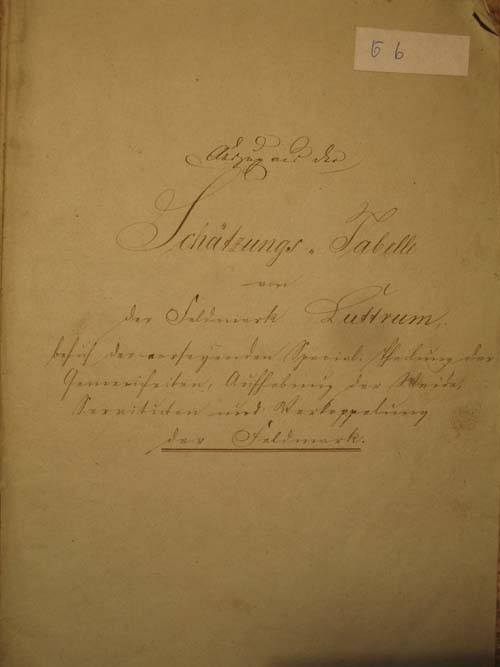 G 6
Auszug aus der
Schätzungs-Tabelle
von
der Feldmark Luttrum,
behuf der vorseyenden Special-Theilung der
Gemeinheiten, Aufhebung der Weide-
Servituten und Verkoppelung
der Feldmark.